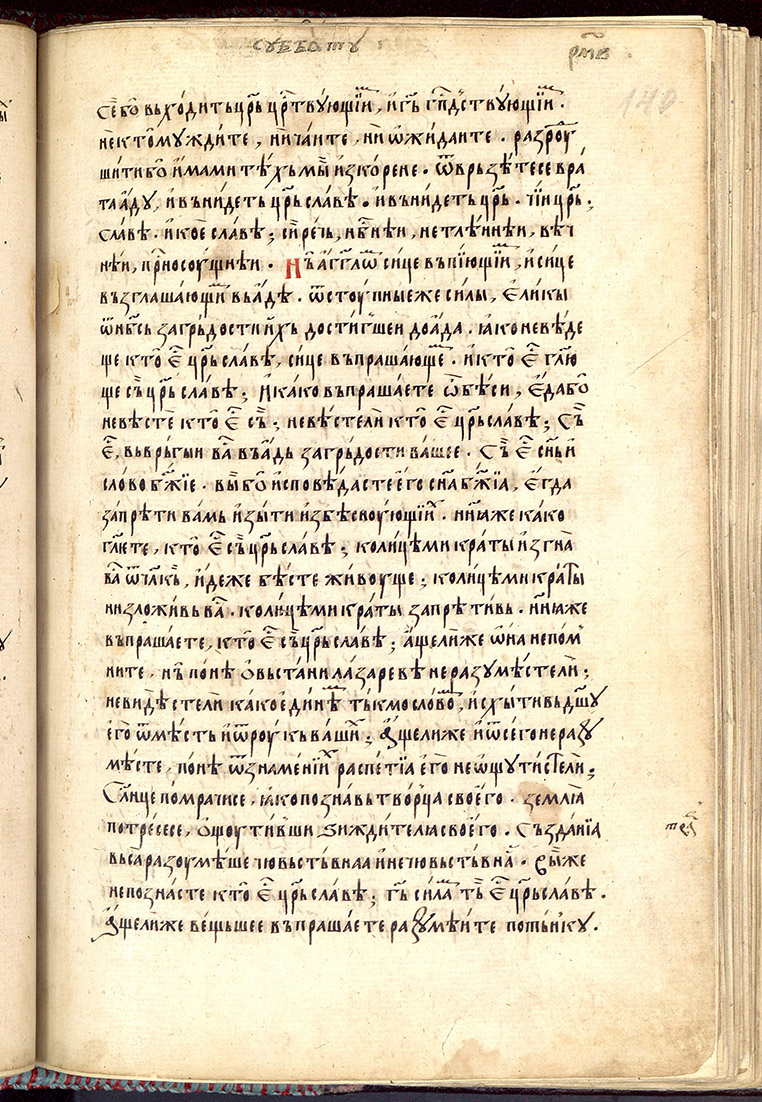 сꙋббѡтꙋ
рм҃в
140
Се́ бо̀ вьхо́дить цр҃ь цр҃твꙋ́ющїи, и҆ гь҃ гп҃дствꙋ́ющїи.
не к томꙋ жди́те, ни ча́ите, ни ѡ҆жида́ите. разрꙋ
ши́ти бо̀ и҆́мами тѣ́хь мы̀ и҆скѡ́рене. ѿврьзѣ́тесе вра
та а҆́дꙋ, и҆ вьни́деть цр҃ь сла́вѣ. и҆ вьни́деть цр҃ь. чїи цр҃ь.
сла́вѣ. и҆ коѐ сла́вѣ; си́речь, нб҃нѣи, нетлѣ́ннѣи, вѣч
нѣи, прⷭ҇носꙋщнѣи. Нь̀ а҆гг҃лѡⷨ си́це вьпїю́щїиⷨ, и҆ си́це
вьзглаша́ющїиⷨ вь а҆́дѣ. ѿстꙋ́пныеже си́лы, е҆ли́кы
ѿ нб҃сь за грь́дости и҆́хь дости́гшеи до а҆́да. ꙗ҆́ко не вѣ́де
ще кто̀ е҆́ⷭ҇ цр҃ь сла́вѣ, си́це вьпраша́юще. и҆ кто̀ е҆́ⷭ҇ гл҃ю
ще сь̀ цр҃ь сла́вѣ; И҆ ка́ко вьпраша́ете ѡ҆ бѣ́си, е҆да̀ бо̀
не вѣ́сте кто̀ е҆́ⷭ҇ сь̀; не вѣ́сте ли кто̀ е҆́ⷭ҇ цр҃ь сла́вѣ; Сь̀
е҆́ⷭ҇, вьврь́гыи ва́ⷭ҇ вь а҆́дь за грь́дости ва́шее. Сь̀ е҆́ⷭ҇ сн҃ь и҆
сло́во бж҃їе. вы̀ бо̀ и҆сповѣ́дасте е҆го̀ сн҃а бж҃їа, е҆гда
запрѣ́ти вамь и҆зы́ти и҆з бѣснꙋ́ющїиⷯ. нн҃ꙗже ка́ко
гл҃ете, кто̀ е҆́ⷭ҇ сь̀ цр҃ь сла́вѣ; коли́цѣми кра́ты и҆згна̀
ва́ⷭ҇ ѿ чл҃кь, и҆де́же бѣ́сте живꙋще; коли́цѣми кра́ты
низложи́вь ва́ⷭ҇. коли́цѣми кра́ты запрѣти́вь. нн҃ꙗже
вьпраша́ете, кто̀ е҆́ⷭ҇ сь̀ цр҃ь сла́вѣ; а҆́ще лиже ѡ҆на̀ не пом
ните, нь̀ по́нѣ ѡ҆ вьста́ни ла́заревѣ не разꙋмѣ́сте лѝ;
не ви́дѣсте ли ка́ко е҆ди́нѣⷨ ть́кмо сло́воⷨ, и҆схы́ти вь дш҃ꙋ
е҆го̀ ѿ мѣ́сть и҆ ѿ рꙋ́кь ва́шиⷯ; А҆́ще лиже и҆ ѿ сего̀ не разꙋ
мѣ́сте, по́нѣ ѿ зна́менїиⷯ распе́тїа е҆го̀ не ѡ҆щꙋти́сте ли;
Сл҃нце помрачи́се, ꙗ҆́ко позна́вь творца̀ своего̀. землꙗ̀
потре́сесе, ѡ҆щꙋти́вши зижди́телꙗ своего̀. Сьзда́нїа
вьса̀ разꙋмѣ́ше чювьстьвнаа и҆ нечювьстьвнаⷶ. Вы́же
не позна́сте кто̀ е҆́ⷭ҇ цр҃ь сла́вѣ; гь҃ си́лаⷨ ть̀ е҆́ⷭ҇ цр҃ь сла́вѣ.
А҆́ще лиже ве́щьшее вьпраша́ете разꙋмѣ́ите по тьни́кꙋ.